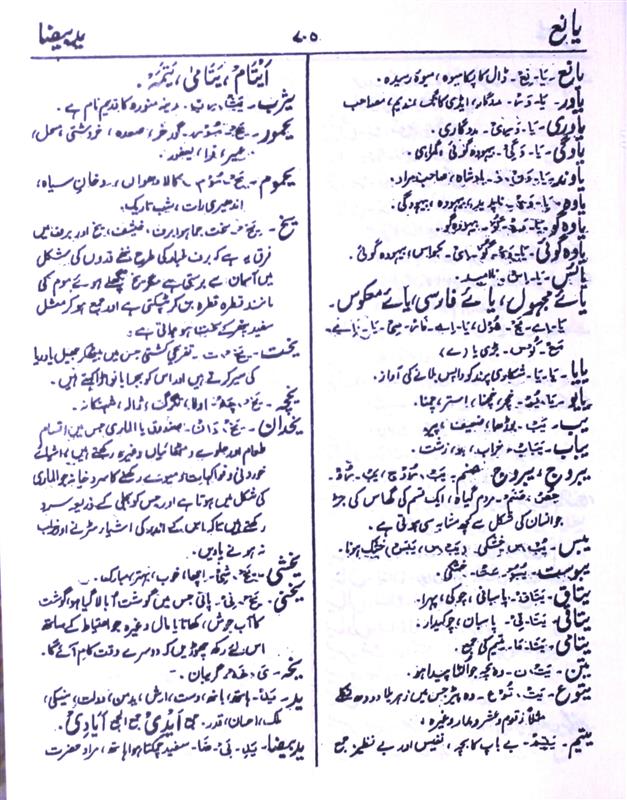 یانع
۷۰۵
یدبیضا
یانع - یَا - نِع - ڈال کا پکا میوہ، میوۂ رسیدہ.
یاور - یَا - وَر - مددگار، ایڈی کانگ، ندیم، مصاحب
یاوری - یَا - وَرِی - مددگاری.
یاوگی - یَا - وَگی - بیہودہ گوئی، گمراہی.
یاوند - یَا - وَن - د - بادشاہ، صاحب مراد.
یاوہ - یَا - وَہ - ناپدید، بیہودہ، بیہودگی.
یاوہ گو - یَا - وَہ - گو - بیہودہ گو.
یاوہ گوئی - یَا - وَہ - گو - ای - بکواس، بیہودہ گوئی.
یائس - یَا - اِس - ناامید.
یائے مجہول، یائے فارسی، یائے معکوس.
یَا - اے - مَج - ہُول، یَا - اے - فَار - سِی، یَا - اے -
مَع - کُوس - بڑی یا (ے)
یایا - یَا - یَا - شکاری پرند کو واپس بلانے کی آواز.
یابو - خچر، استر
یب - یَب - بوڑھا، ضعیف، پیر
یباب - یَبَاب - خراب، زشت.
یبروج، یبروج صنم -
صَنَم - مردم گیاہ، ایک قسم کی گھاس کی جڑ
جو انسان کی شکل سے کچھ مشابہ سی ہوتی ہے.
یبس - خشکی، خشک ہونا.
یبوست - یَبُو - سَت - خشکی.
یتاق - یَتَاق - پاسبانی، چوکی، پہرا.
یتاقی - یَتَا - قِی - پاسبان، چوکیدار.
یتامی - یَتَا - مَا - یتیم کی جمع.
یتن - یَت - ن - وہ بچہ جو الٹا پیدا ہو.
یتوع - یَت - تُوع - وہ پیڑ جس میں زہریلا دودھ نکلے
مثلاً زقوم و عشر و مدار وغیرہ.
یتیم - یَتِیم - بے باپ کا بچہ، نفیس اور بے نظیر جمع
اَیْتَام، یَتَامیٰ، یَتَمَہ.
یثرب - مدینہ منورہ کا قدیم نام ہے.
یحمور - یَح - مُور - گورخر،
یحموم - یَح - مُوم - کالا دھواں، دخانِ سیاہ،
اندھیری رات، شب تاریک.
یخ - یَخ - سخت جما ہوا برف، یخ اور برف میں
فرق یہ ہے کہ برف غبار کی طرح ننھے ذروں کی شکل
میں آسمان سے برستی ہے مگر یخ پگھلے ہوئے موم کی
مانند قطرہ قطرہ بن کر ٹپکتی ہے اور جمع ہو کر مثل
سفید پتھر کے سخت ہو جاتی ہے.
یخت - تفریحی کشتی جس میں بیٹھ کر جھیل یا دریا
کی سیر کرتے ہیں اور اس کو بجرا یا نواڑا کہتے ہیں.
یخچہ - یَخ - چَہ - اولا، تگرگ، ژالہ،
یخدان - یَخ - دَان - صندوق یا الماری جس میں اقسام
طعام اور حلوے و مٹھائیاں وغیرہ رکھتے ہیں، اشیائے
خوردنی و فواکہات و میوے رکھنے کا سرد خانہ جو الماری
کی شکل میں ہوتا ہے اور جس کو بجلی کے ذریعہ سرد
رکھتے ہیں تاکہ اس کے اندر کی اشیاء سڑنے اور خراب
نہ ہونے پاویں.
یخشی - یَخ - شِی - اچھا، خوب، بہتر، مبارک.
یخنی - یَخ - نِی - پانی جس میں گوشت اُبالا گیا ہو، گوشت
کا آب جوش، کھانا یا مال وغیرہ جو احتیاط کے ساتھ
اس لئے رکھ چھوڑیں کہ دوسرے وقت کام آئے گا.
یخہ - گریبان.
ید - یَد - ہاتھ، باتھ، دست، ارش، یدمن، دولت، نیکی،
ملک، احسان، قدر. جمع اَیْدِیْ جمع الجمع اَیَادِیْ.
یدبیضا - یَدِ - بَی - ضَا - سفید چمکتا ہوا ہاتھ، مراد حضرت